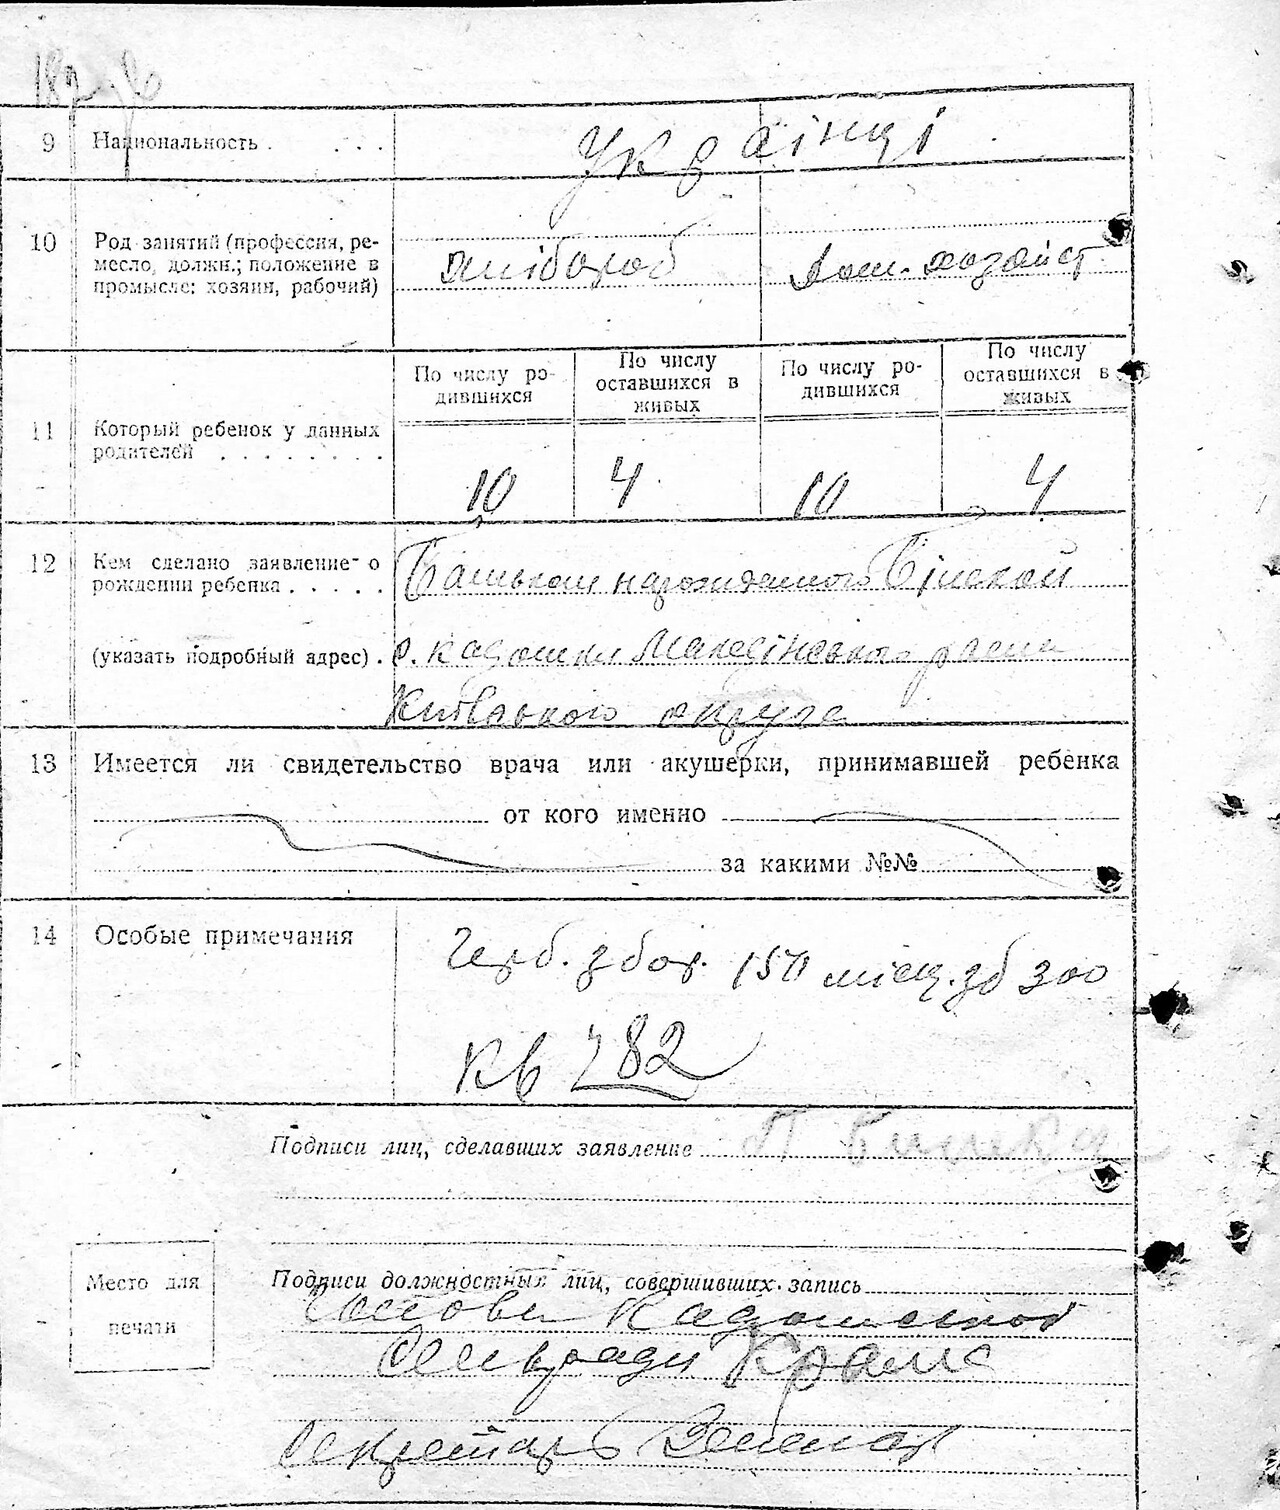 9 Национальность . . . . Українці
10 Род занятий (профессия, ре-
месло, должн.; положение в
промысле: хозяин, рабочий)
хлібороб
дом. хозяйст
По числу ро-
дившихся
По числу
оставшихся в
живых
По числу ро-
дившихся
По числу
оставшихся в
живых
11 Который ребенок у данных
родителей . . . . . . . .
10 4 10 4
12 Кем сделано заявление о
рождении ребенка . . . . .
Батьком народженного
(указать подробный адрес) .
с. Кадошки
Київського округа
13 Имеется ли свидетельство врача или акушерки, принимавшей ребенка
от кого именно
за какими №№
14 Особые примечания
Герб. збор. 150 місц. зб 300
Кв 282
Подписи лиц, сделавших заявление
Место для
печати
Подписи должностных лиц, совершивших запись
Голова
Сельради
Секретарь